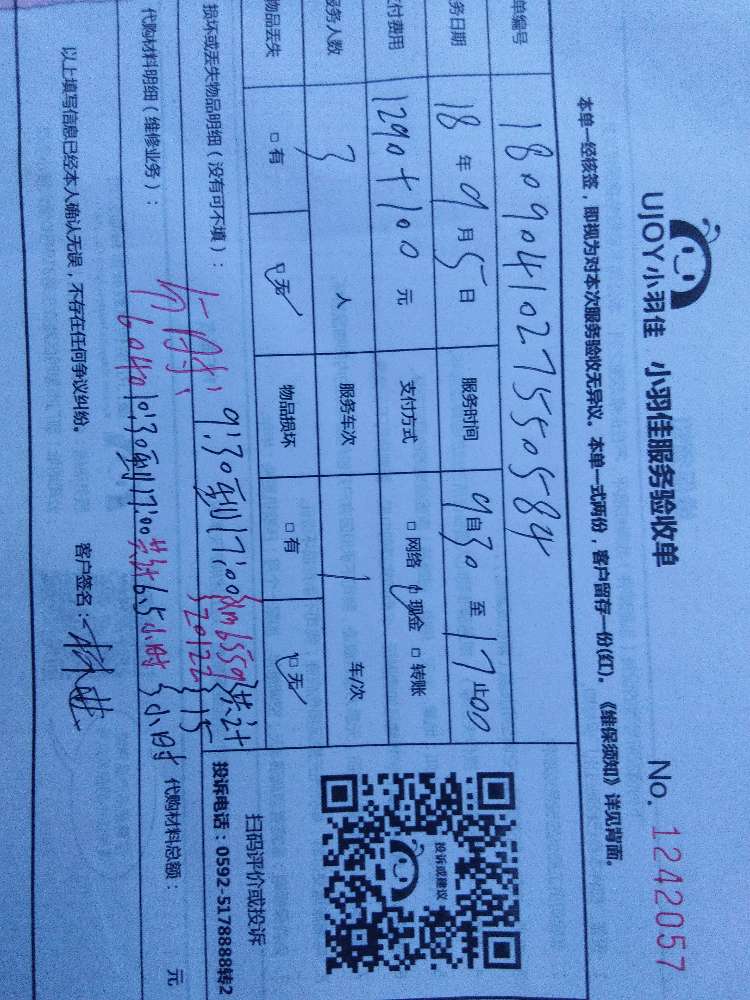 UJOY小羽佳 小羽佳服务验收单 No. 1242057
本单一经核签，即视为对本次服务验收无异议。本单一式两份，客户留存一份(红)。《维保须知》详见背面。
单编号 1809041027550584
务日期 18年9月5日 服务时间 9自30至17止00
付费用 1290+100元 支付方式 □网络 □现金 □转账
服务人数 3人 服务车次 1 车/次
物品丢失 □有 □无 物品损坏 □有 □无
投诉或建议
扫码评价或投诉
投诉电话：0592-5178888转2
损坏或丢失物品明细（没有可不填）：
9:30到17:00 6559 共计
20122 15
代购材料明细（维修业务）：
6040 10:30到17:00共计6.5小时 小时
代购材料总额： 元
以上填写信息已经本人确认无误，不存在任何争议纠纷。 客户签名：